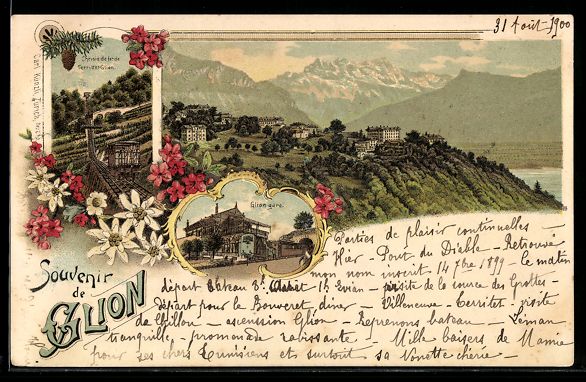 31 Août 1900
Chemin de fer de
Territet-Glion.
Glion-gare.
Souvenir
de
GLION
Parties de plaisir continuelles
Hier - Pont du Diable - Retrouvé
mon nom inscrit 14 7bre 1899 - le matin
départ bateau 8h Evian - visite de la source des Grottes -
Départ pour le Bouveret diner - Villeneuve - Territet - visite
de Chillon - ascension Glion - Reprenons bateau - Léman
tranquille, promenade ravissante - Mille baisers de Mamie
pour ses chers Tunisiens et surtout sa Ninette chérie -